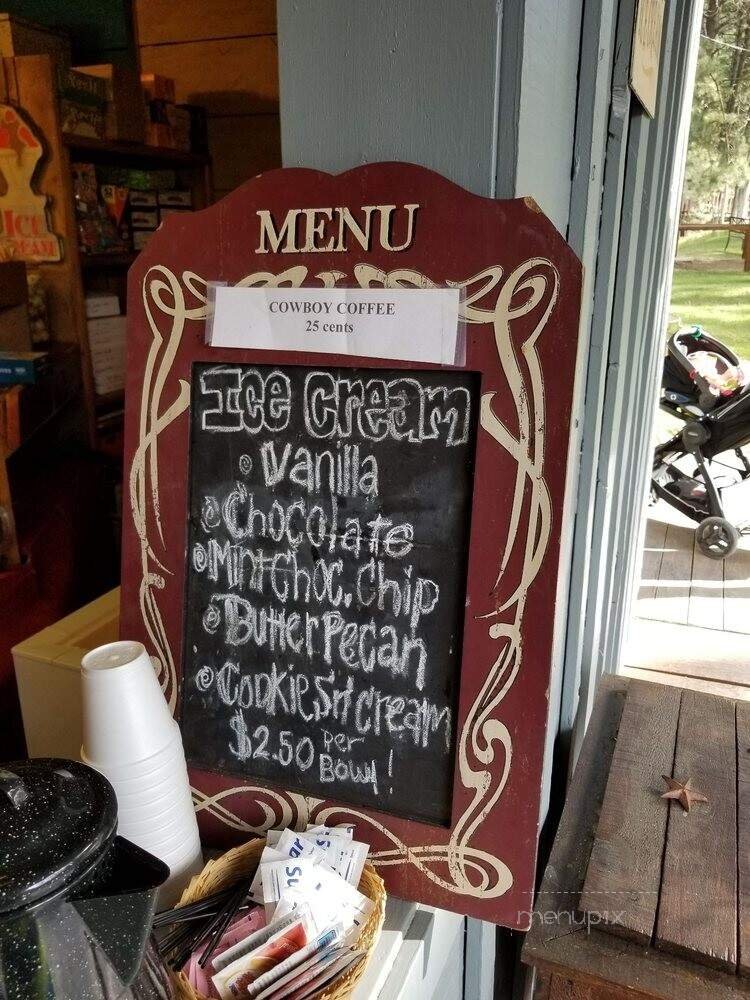 MENU
COWBOY COFFEE
25 cents
Ice Cream
Vanilla
Chocolate
Mint Choc. Chip
Butter Pecan
Cookies n' Cream
$2.50 per Bowl!
ICE
CREAM
menupix